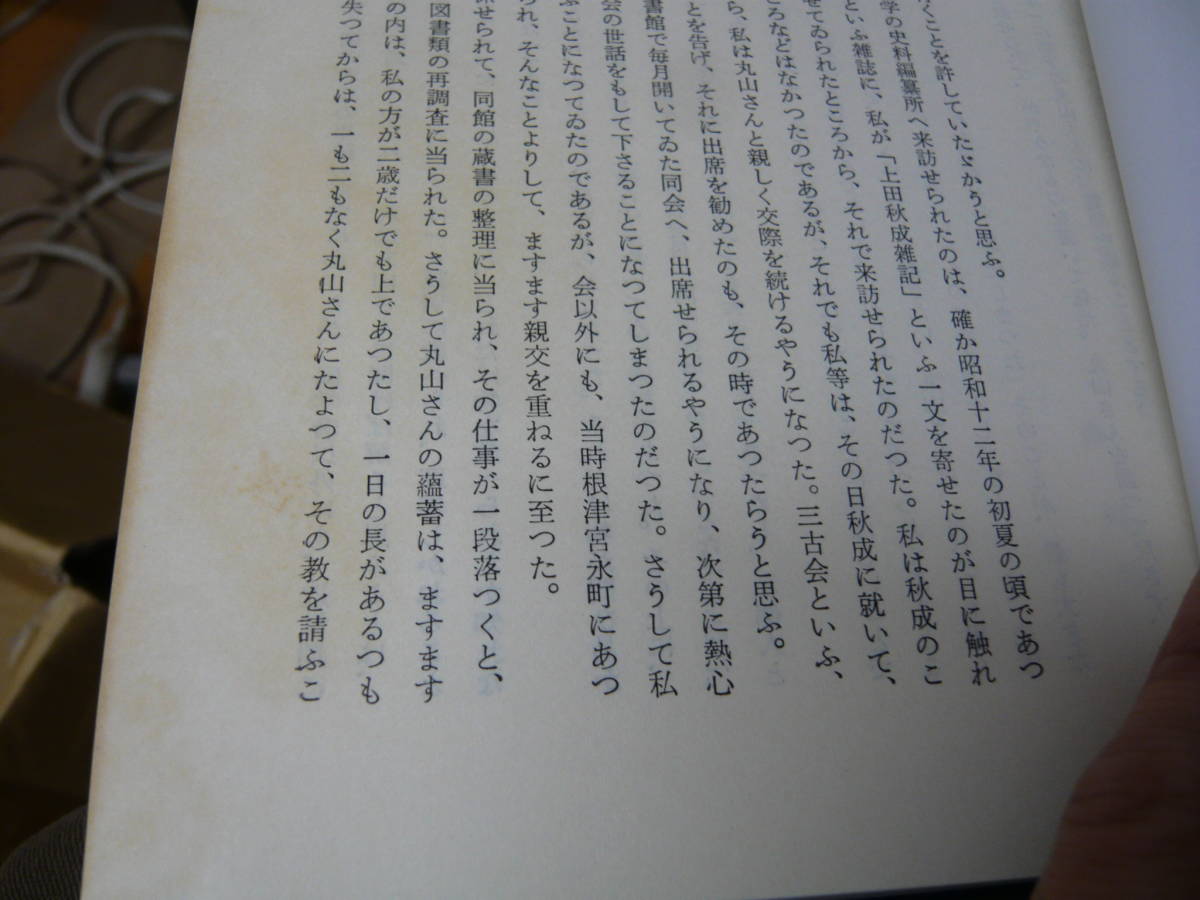 くことを許していたゞかうと思ふ。
学の史料編纂所へ来訪せられたのは、確か昭和十二年の初夏の頃であつ
といふ雑誌に、私が「上田秋成雑記」といふ一文を寄せたのが目に触れ
せてゐられたところから、それで来訪せられたのだつた。私は秋成のこ
ころなどはなかつたのであるが、それでも私等は、その日秋成に就いて、
ら、私は丸山さんと親しく交際を続けるやうになつた。三古会といふ、
とを告げ、それに出席を勧めたのも、その時であつたらうと思ふ。
書館で毎月開いてゐた同会へ、出席せられるやうになり、次第に熱心
会の世話をもして下さることになつてしまつたのだつた。さうして私
ぶことになつてゐたのであるが、会以外にも、当時根津宮永町にあつ
られ、そんなことよりして、ますます親交を重ねるに至つた。
せられて、同館の蔵書の整理に当られ、その仕事が一段落つくと、
図書類の再調査に当られた。さうして丸山さんの蘊蓄は、ますます
の内は、私の方が二歳だけでも上であつたし、一日の長があるつも
失つてからは、一も二もなく丸山さんにたよつて、その教を請ふこ